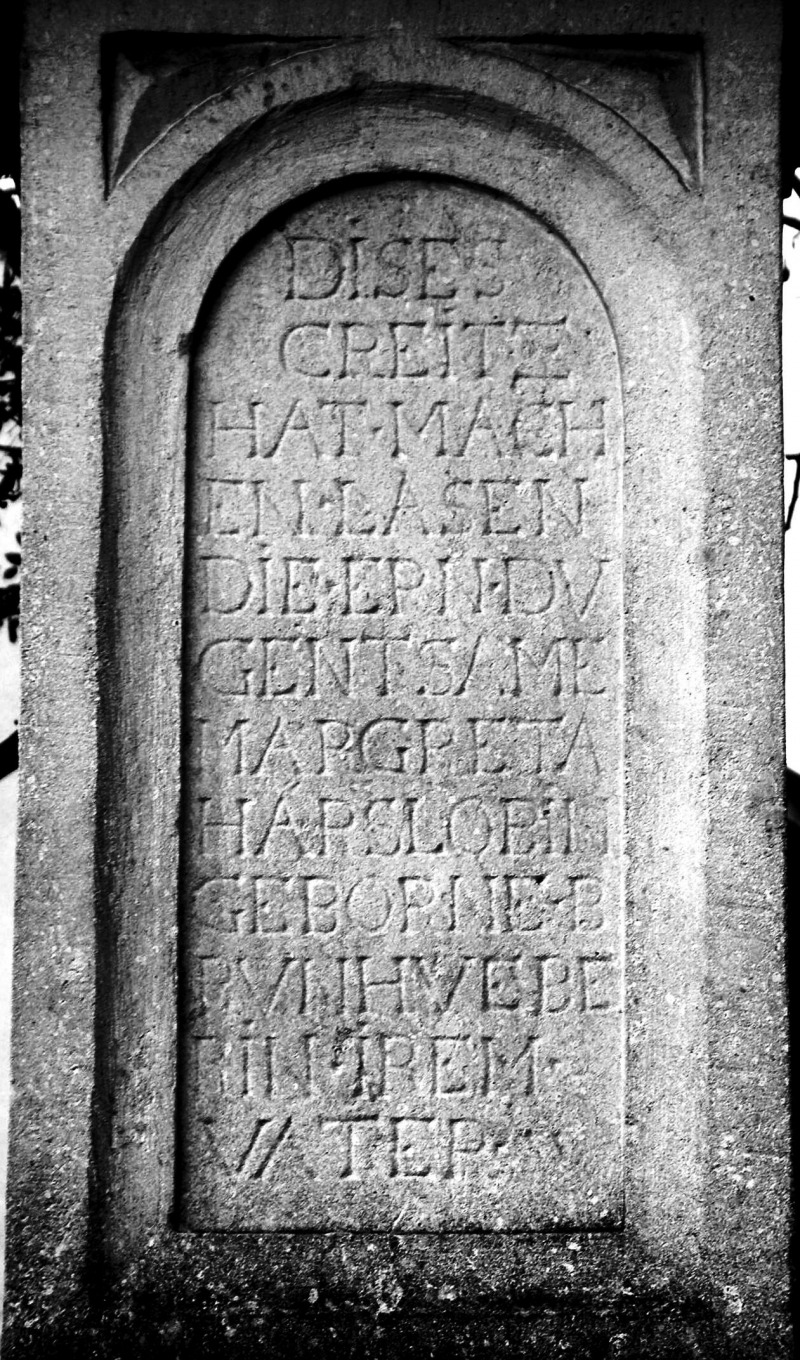 DISES
CREITZ
HAT·MACH
EN·LASEN
DIE·ERN·DV
GENT·SAME
MARGRETA
HARSLORIN
GEBORNE·B
RVNHVEBE
RIN·IREM·
VATER·